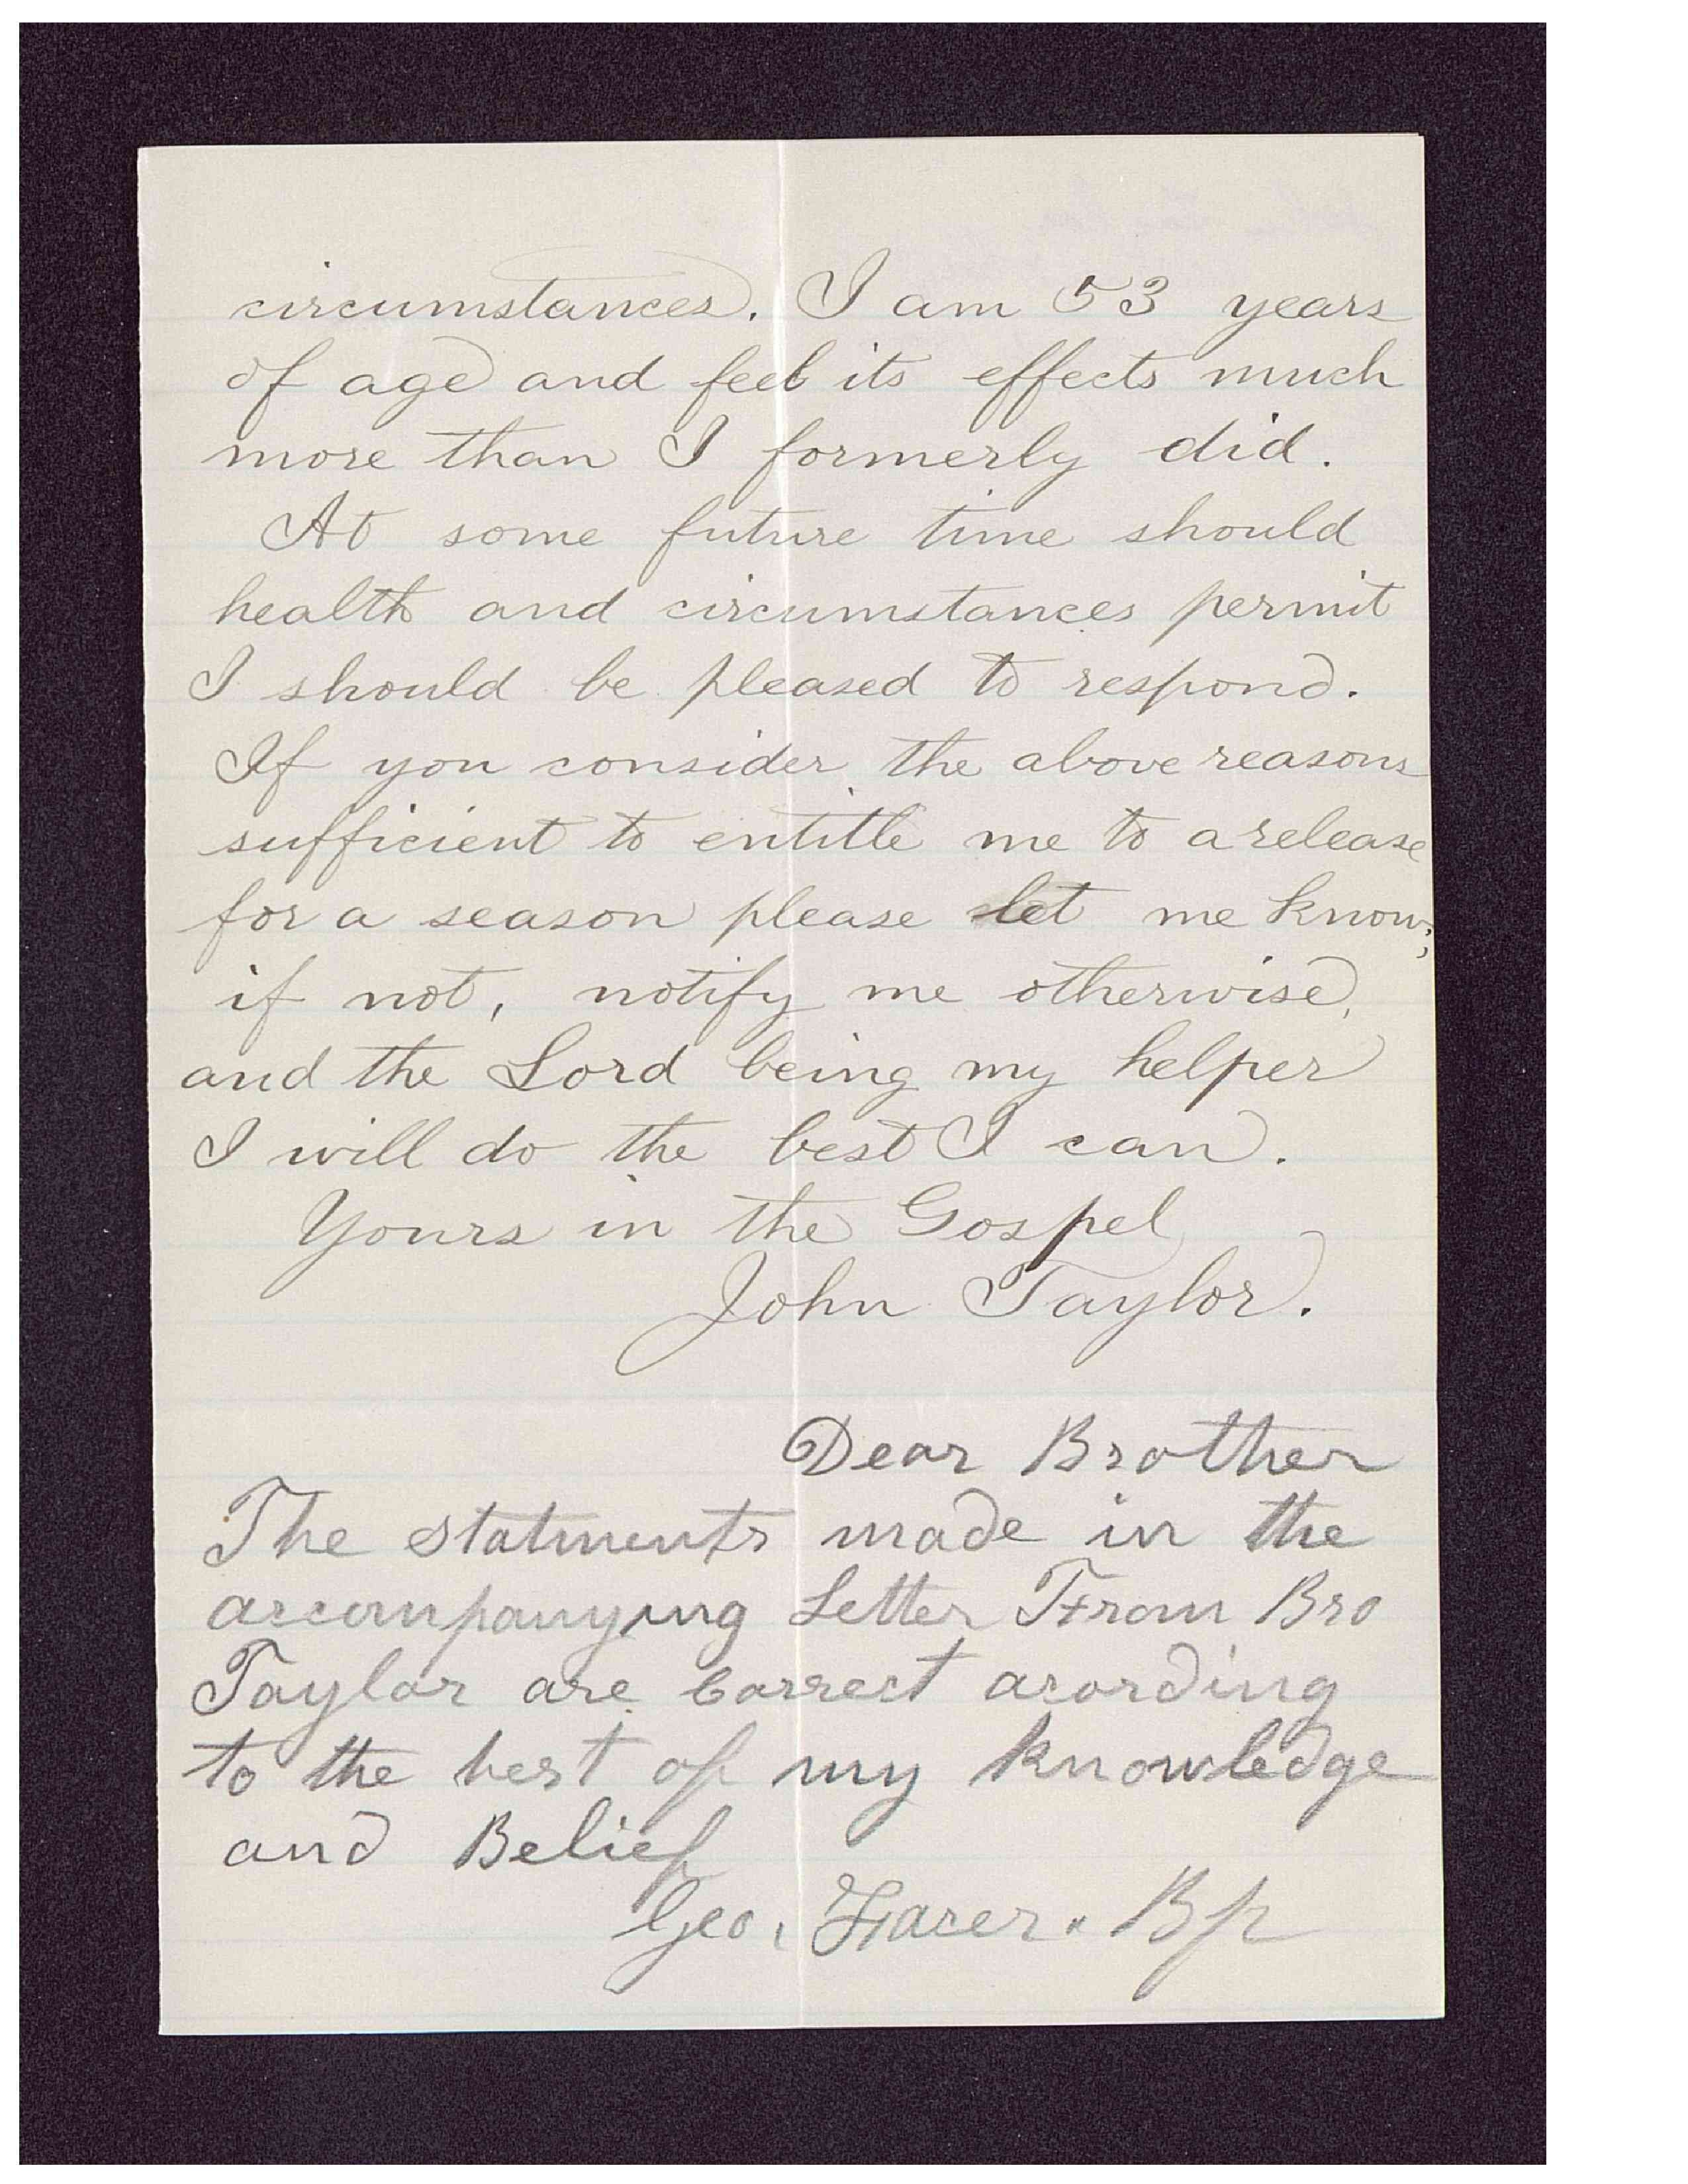 circumstances. I am 53 years
of age and feel its effects much
more than I formerly did.
At some future time should
health and circumstances permit
I should be pleased to respond.
If you consider the above reasons
sufficient to entitle me to a release
for a season please let me know;
if not, notify me otherwise,
and the Lord being my helper
I will do the best I can.
Yours in the Gospel
John Taylor.
Dear Brother
The statments made in the
accompanying Letter From Bro
Taylor are Correct acording
to the best of my knowledge
and Belief
Geo. Facer. Bp